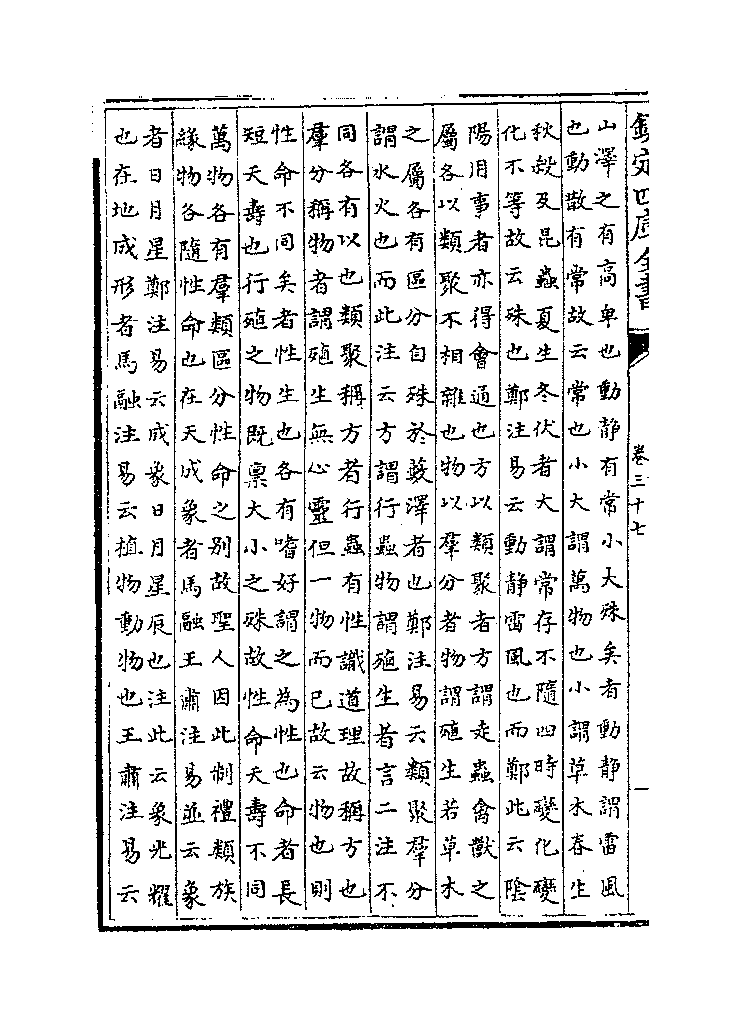 欽定四庫全書
卷三十七
一
山澤之有高卑也動靜有常小大殊矣者動靜謂雷風
也動散有常故云常也小大謂萬物也小謂草木春生
秋殺及昆蟲夏生冬伏者大謂常存不隨四時變化變
化不等故云殊也鄭注易云動靜雷風也而鄭此云陰
陽用事者亦得會通也方以類聚者方謂走蟲禽獸之
屬各以類聚不相雜也物以羣分者物謂殖生若草木
之屬各有區分自殊於藪澤者也鄭注易云類聚羣分
謂水火也而此注云方謂行蟲物謂殖生者言二注不
同各有以也類聚稱方者行蟲有性識道理故稱方也
羣分稱物者謂殖生無心靈但一物而已故云物也則
性命不同矣者性生也各有嗜好謂之為性也命者長
短夭壽也行殖之物既稟大小之殊故性命夭壽不同
萬物各有羣類區分性命之別故聖人因此制禮類族
緣物各隨性命也在天成象者馬融王肅注易並云象
者日月星鄭注易云成象日月星辰也注此云象光耀
也在地成形者馬融注易云植物動物也王肅注易云